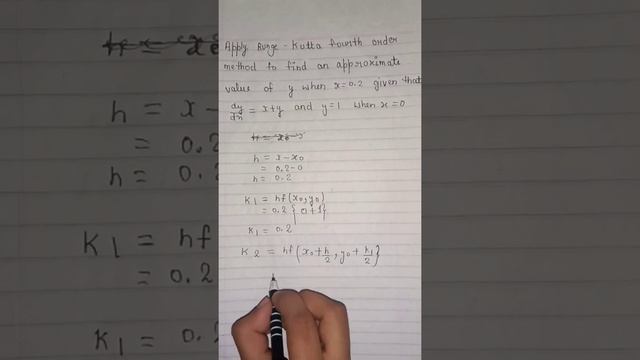 Apply Runge-Kutta fourth order
method to find an approximate
value of y when x=0.2 given that
dy/dx = x+y and y=1 when x=0
h = x-x0
= 0.2-0
h = 0.2
K1 = hf(x0,y0)
= 0.2 {0+1}
K1 = 0.2
K2 = hf{x0+h/2, y0+k1/2}